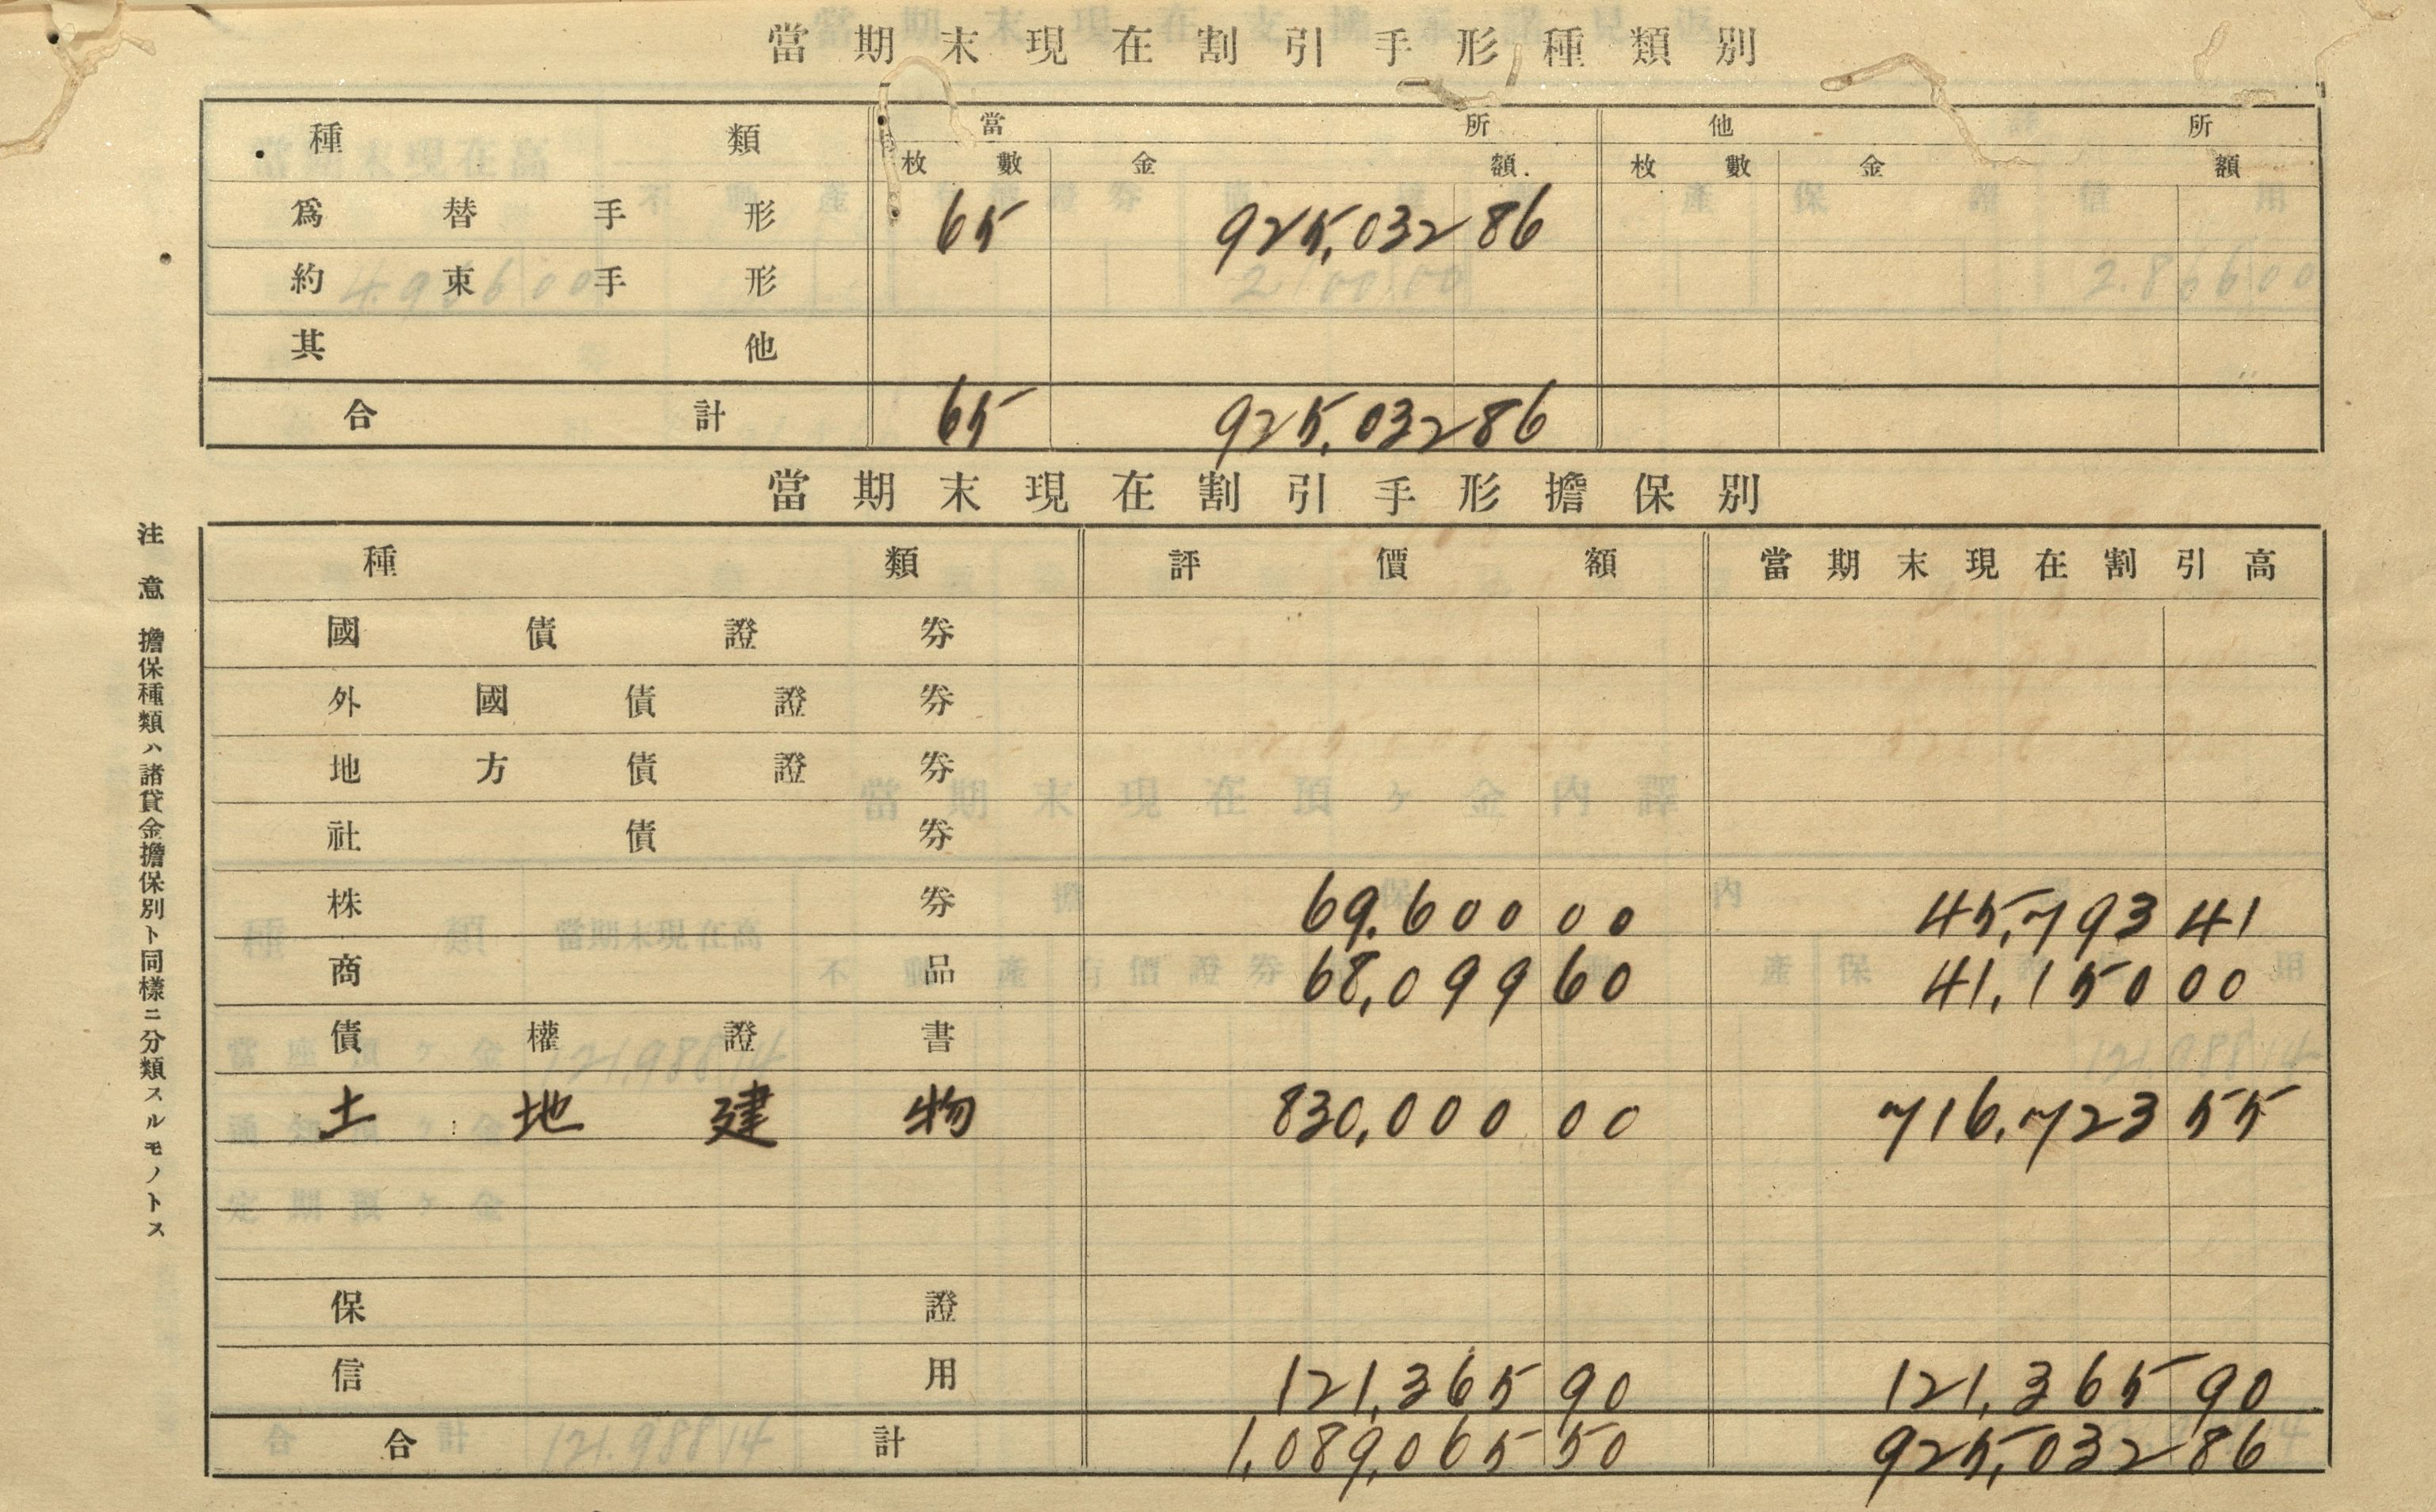 當期末現在割引手形種類別
種類 當所 他所
枚數 金額 枚數 金額
爲替手形 65 925,032 86
約束手形
其他
合計 65 925,032 86
當期末現在割引手形擔保別
種類 評價額 當期末現在割引高
國債證券
外國債證券
地方債證券
社債券
株券 69,600 00 45,793 41
商品 68,099 60 41,150 00
債權證書
土地建物 830,000 00 716,723 55
保證
信用 121,365 90 121,365 90
合計 1,089,065 50 925,032 86
注意 擔保種類ハ諸貸金擔保別ト同樣ニ分類スルモノトス